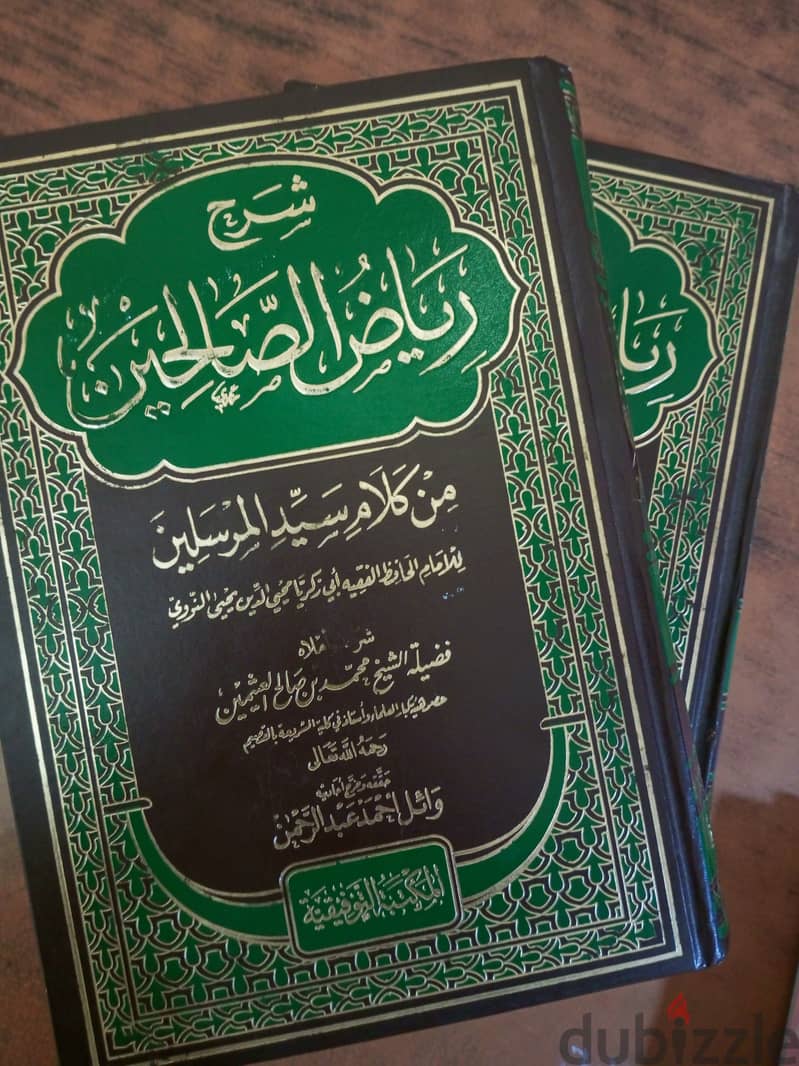 شرح
رياضُ الصَّالِحِيْنَ
مِنْ كَلَامِ سَيِّدِ المُرْسَلِينَ
للإمام الحافظ الفقيه أبي زكريا محيي الدين يحيى النووي
فضيلة الشيخ محمد بن صالح العثيمين
عضو هيئة كبار العلماء وأستاذ في كلية الشريعة بالقصيم
رحمه الله تعالى
حققه وخرج أحاديثه
وائل أحمد عبد الرحمن
المكتبة التوفيقية
dubizzle